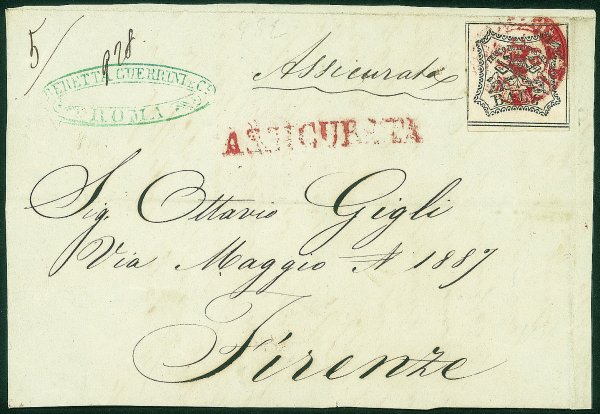 5/
928
Assicurata
GUERRINI & C.
ROMA
ASSICURATA
Sig. Ottavio Gigli
Via Maggio N 1887
Firenze